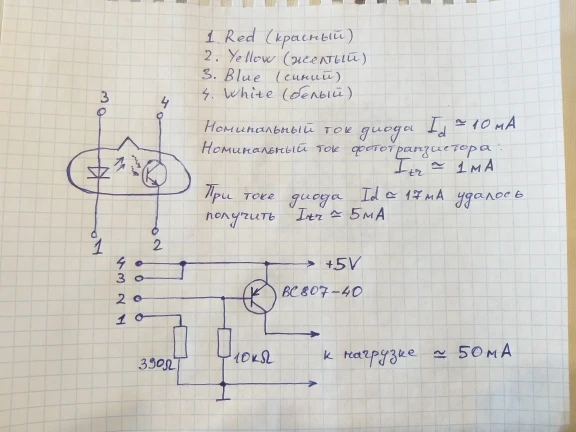 1 Red (красный)
2. Yellow (желтый)
3. Blue (синий)
4. White (белый)
3 4
Номинальный ток диода Id ≃ 10 mA
Номинальный ток фототранзистора:
Itr ≃ 1 mA
При токе диода Id ≃ 17 mA удалось
получить Itr ≃ 5 mA
1 2
4 +5V
3
2 BC807-40
1
390Ω 10кΩ к нагрузке ≃ 50 mA